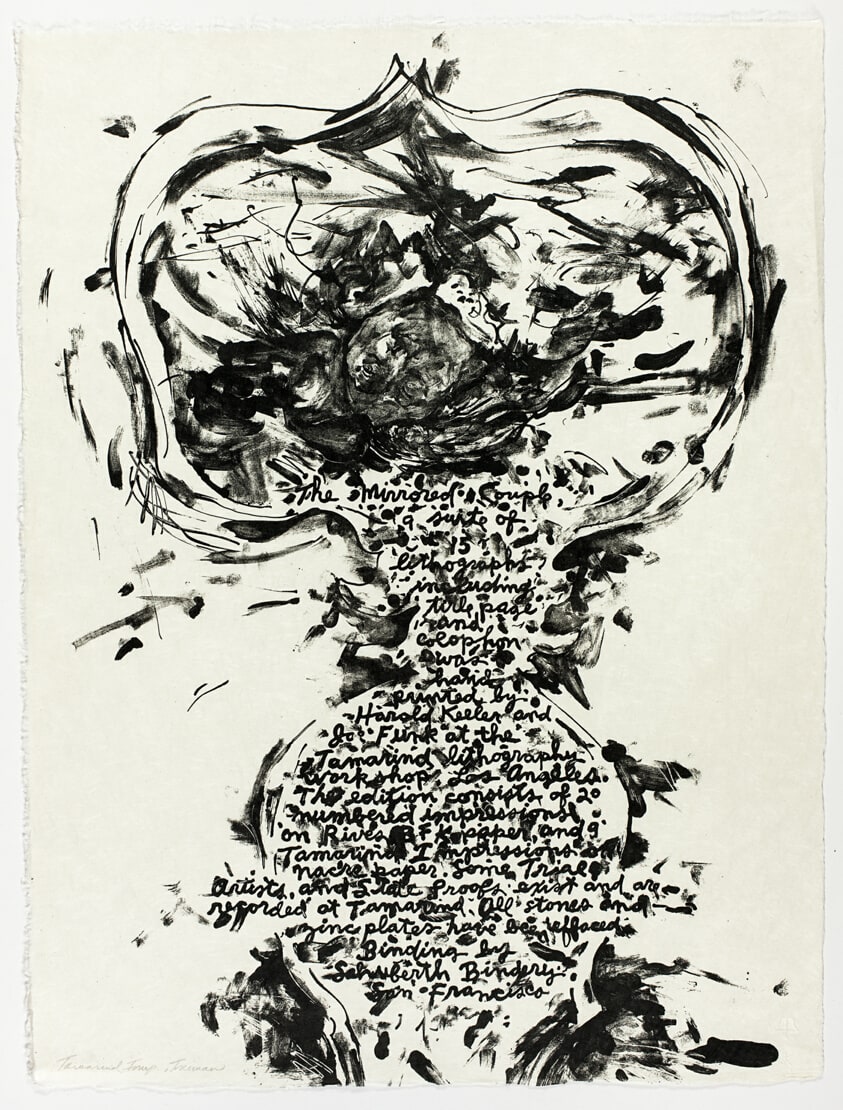 The Mirrored Couple
a suite of
15
lithographs
including
title page
and
colophon
was
hand
printed by
Harold Keeler and
Jo Funk at the
Tamarind lithography
Workshop. Los Angeles.
The edition consists of 20
numbered impressions
on Rives B.F.K. paper, and 9
Tamarind Impressions on
nacre paper. Some Trial,
Artists, and State Proofs exist and are
recorded at Tamarind. All stones and
zinc plates have been effaced.
Binding by
Schuberth Bindery.
San Francisco
Tamarind Imp.